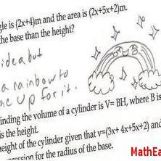 gle is (2x+4)m and the area is (2x+5x+2)m.
the base than the height?
idea but
a rainbow to
up for it.
finding the volume of a cylinder is V= BH, where B is
is the height.
height of the cylinder given that v=(3x+ 4x+5x+2) and
ression for the radius of the base.
MathEa